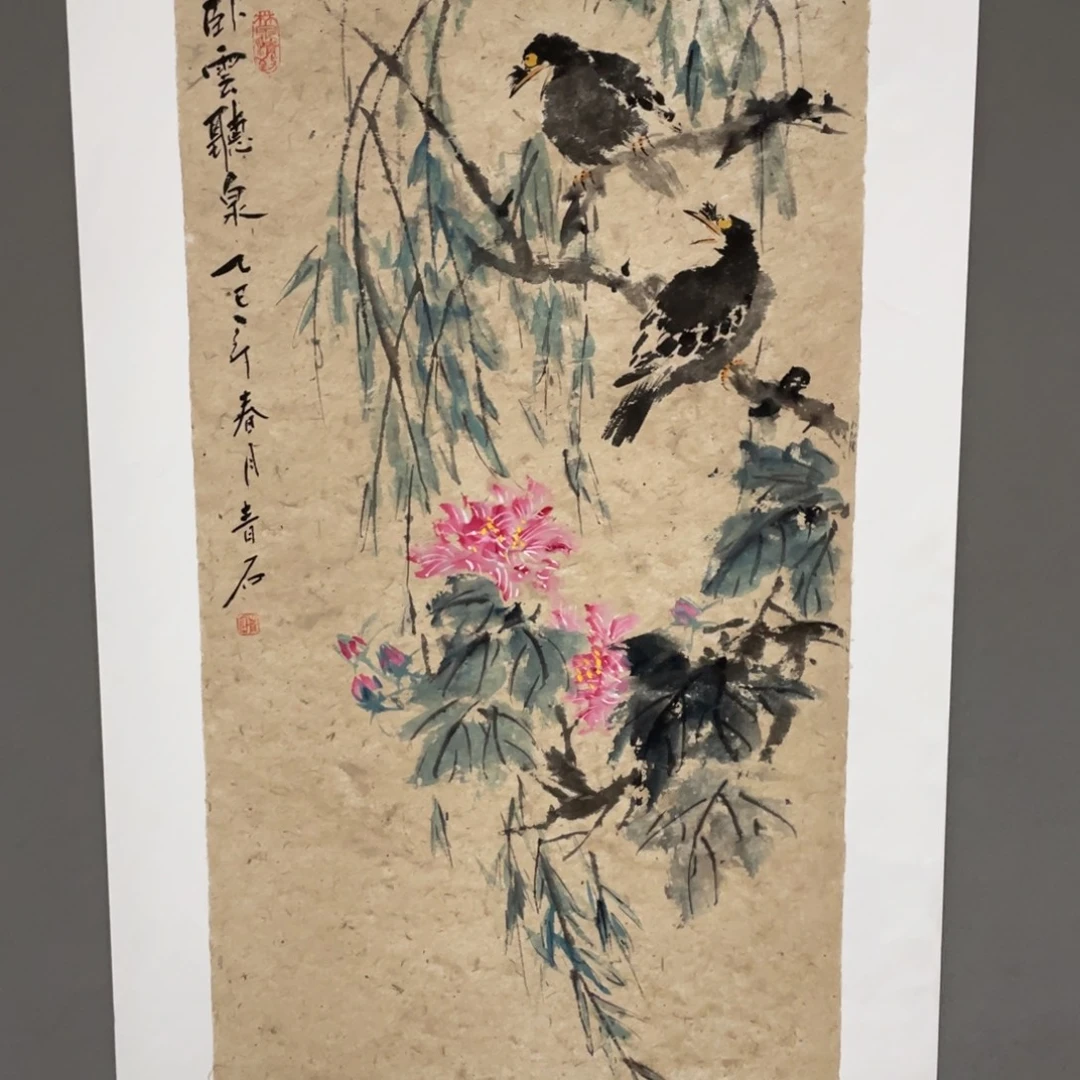 卧雲聽泉乙巳年春月青石